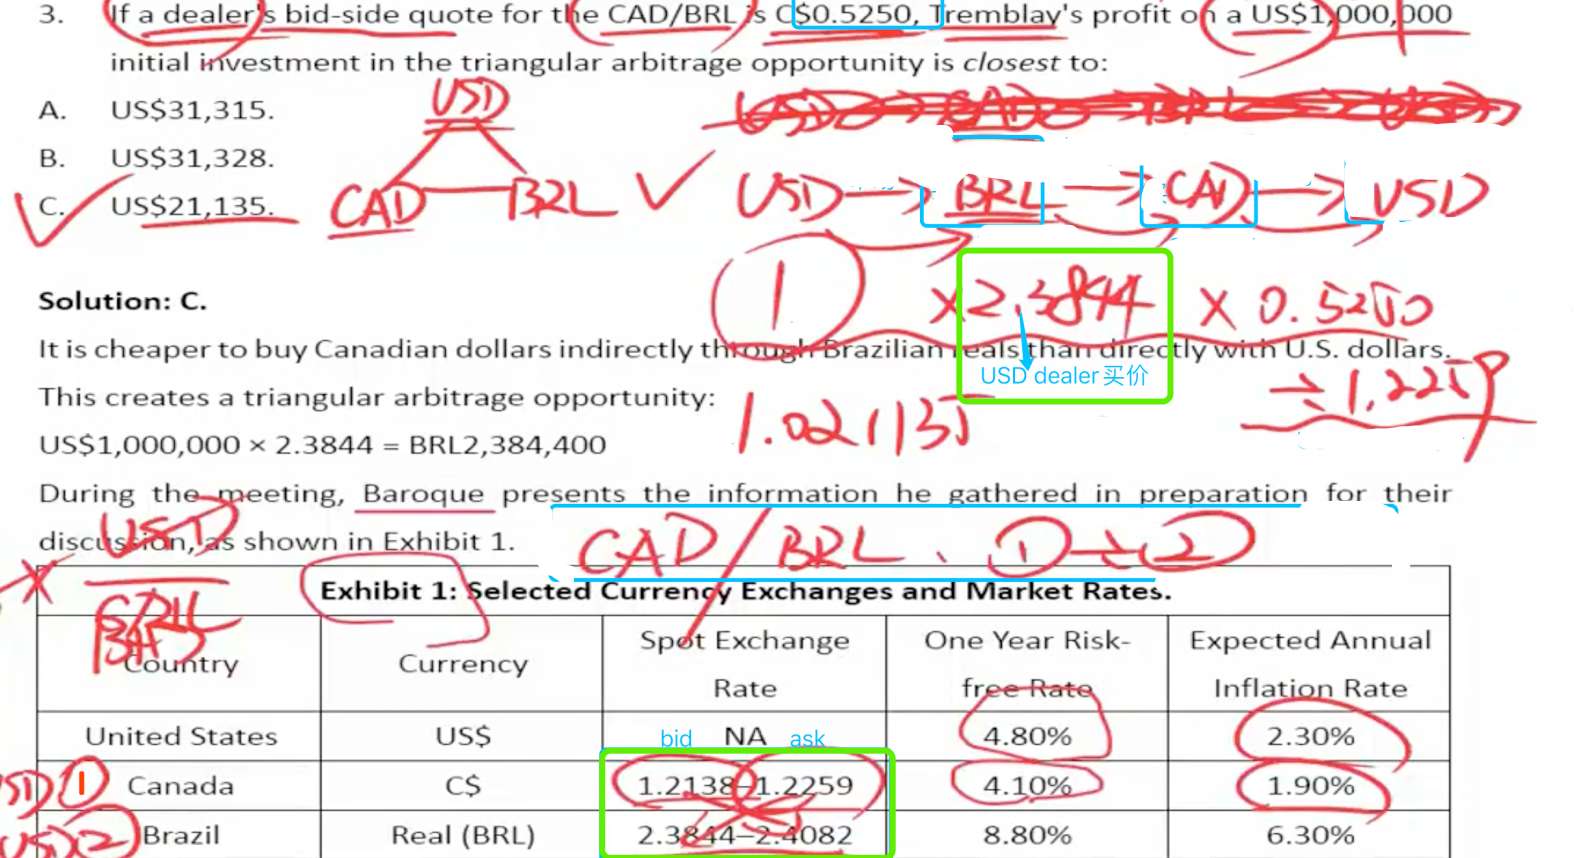 3. If a dealer's bid-side quote for the CAD/BRL is C$0.5250, Tremblay's profit on a US$1,000,000
initial investment in the triangular arbitrage opportunity is closest to:
A. US$31,315.
B. US$31,328.
C. US$21,135.
USD
CAD BRL
USD CAD BRL USD
USD → BRL → CAD → USD
1 ×2.3844 × 0.5250
÷ 1.2259
1.021135
USD dealer买价
Solution: C.
It is cheaper to buy Canadian dollars indirectly through Brazilian reals than directly with U.S. dollars.
This creates a triangular arbitrage opportunity:
US$1,000,000 × 2.3844 = BRL2,384,400
During the meeting, Baroque presents the information he gathered in preparation for their
discussion, as shown in Exhibit 1.
CAD/BRL ① ÷ ②
USD
BRL
Exhibit 1: Selected Currency Exchanges and Market Rates.
Country Currency Spot Exchange Rate One Year Risk-free Rate Expected Annual Inflation Rate
bid ask
United States US$ NA 4.80% 2.30%
① Canada C$ 1.2138–1.2259 4.10% 1.90%
② Brazil Real (BRL) 2.3844–2.4082 8.80% 6.30%